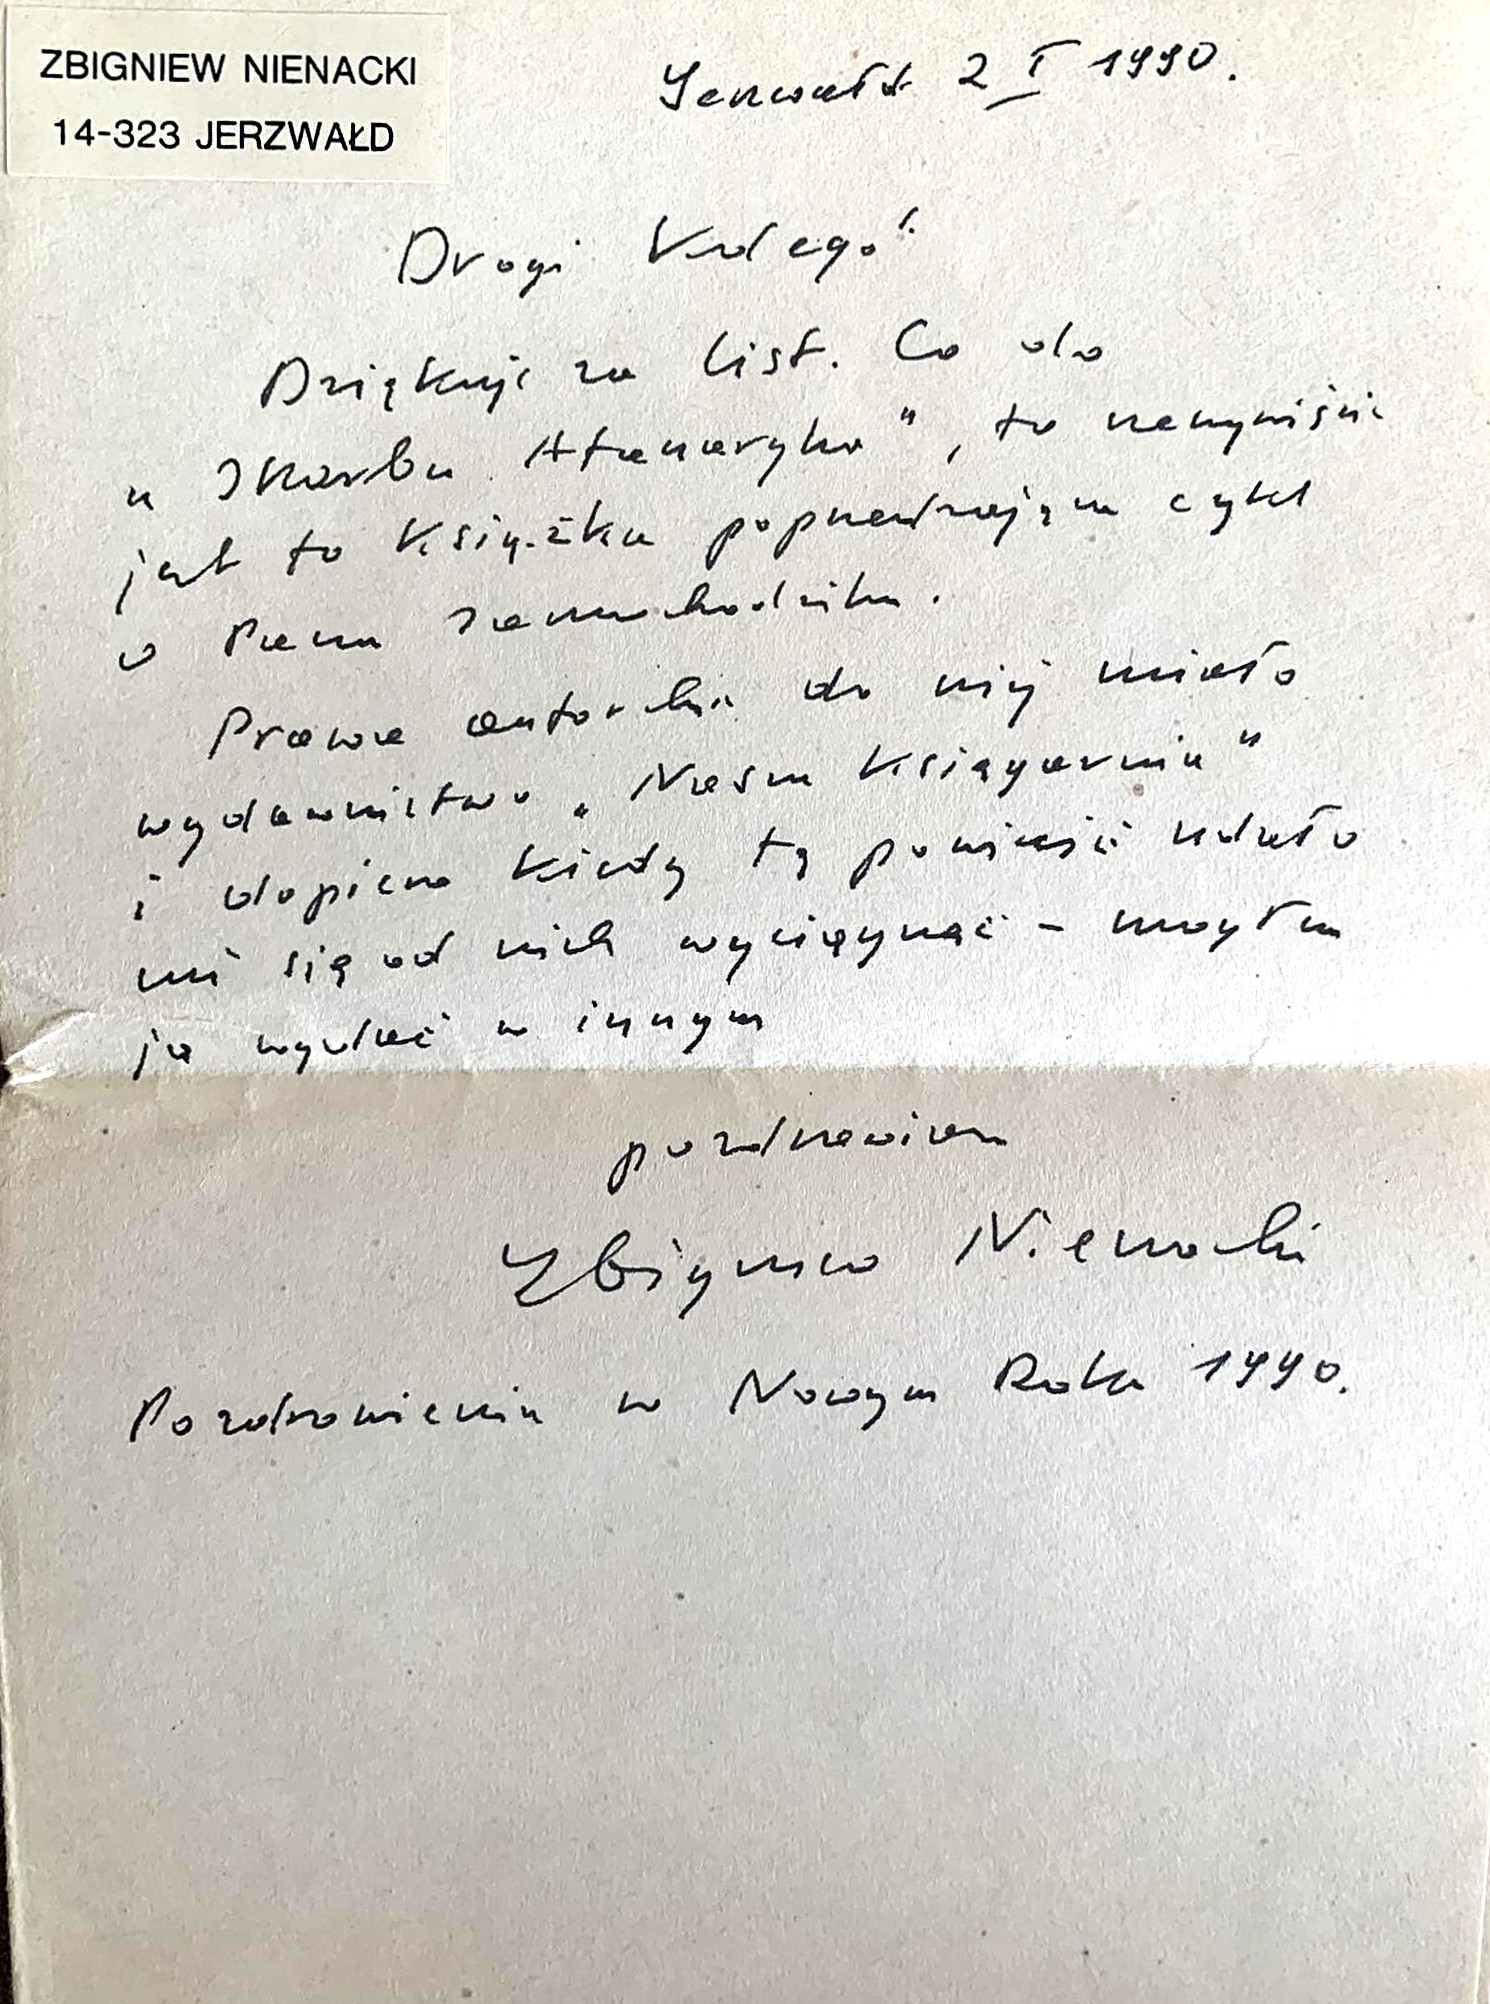 ZBIGNIEW NIENACKI
14-323 JERZWAŁD
Jerzwałd 2 I 1990.
Drogi Kolego!
Dziękuję za list. Co do
"Skarbu Atanaryka", to rzeczywiście
jest to książka poprzedzająca cykl
o Panu Samochodziku.
Prawa autorskie do niej miało
wydawnictwo "Nasza Księgarnia"
i dopiero kiedy tę powieść udało
mi się od nich wyciągnąć - mogłem
ją wydać w innym
pozdrawiam
Zbigniew Nienacki
Pozdrowienia w Nowym Roku 1990.